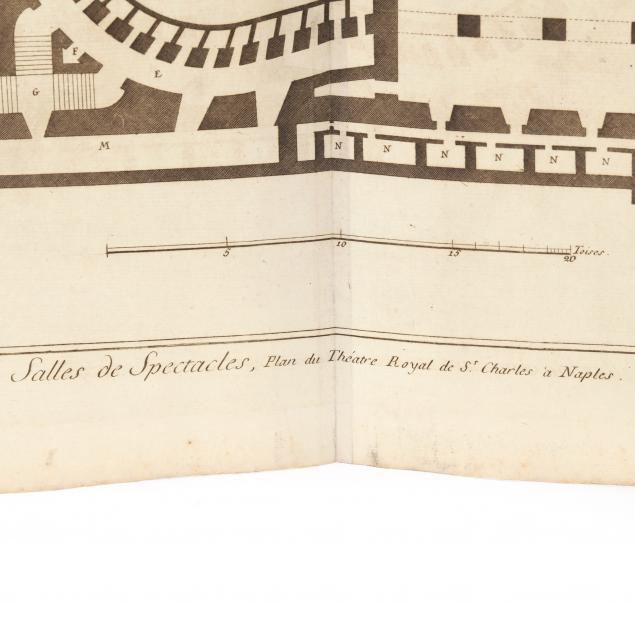 F
E
G
M
N N N N N N
5 10 15 20 Toises.
Salles de Spectacles, Plan du Théatre Royal de S.t Charles a Naples.